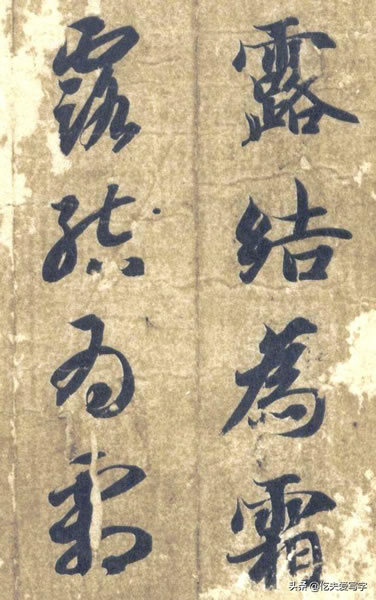 露結為霜
露結為霜
头条 @忆夫爱写字